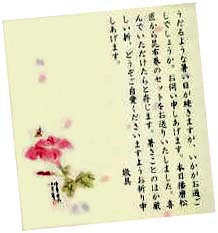 うだるような暑い日が続きますが、いかがお過ご
しでしょうか。お伺い申しあげます。本日播磨松
庭から昆布巻のセットをお送りいたしました。喜
んでいただけたらと存じます。暑さことのほか厳
しい折、どうぞご自愛くださいますようお祈り申
しあげます。
敬具